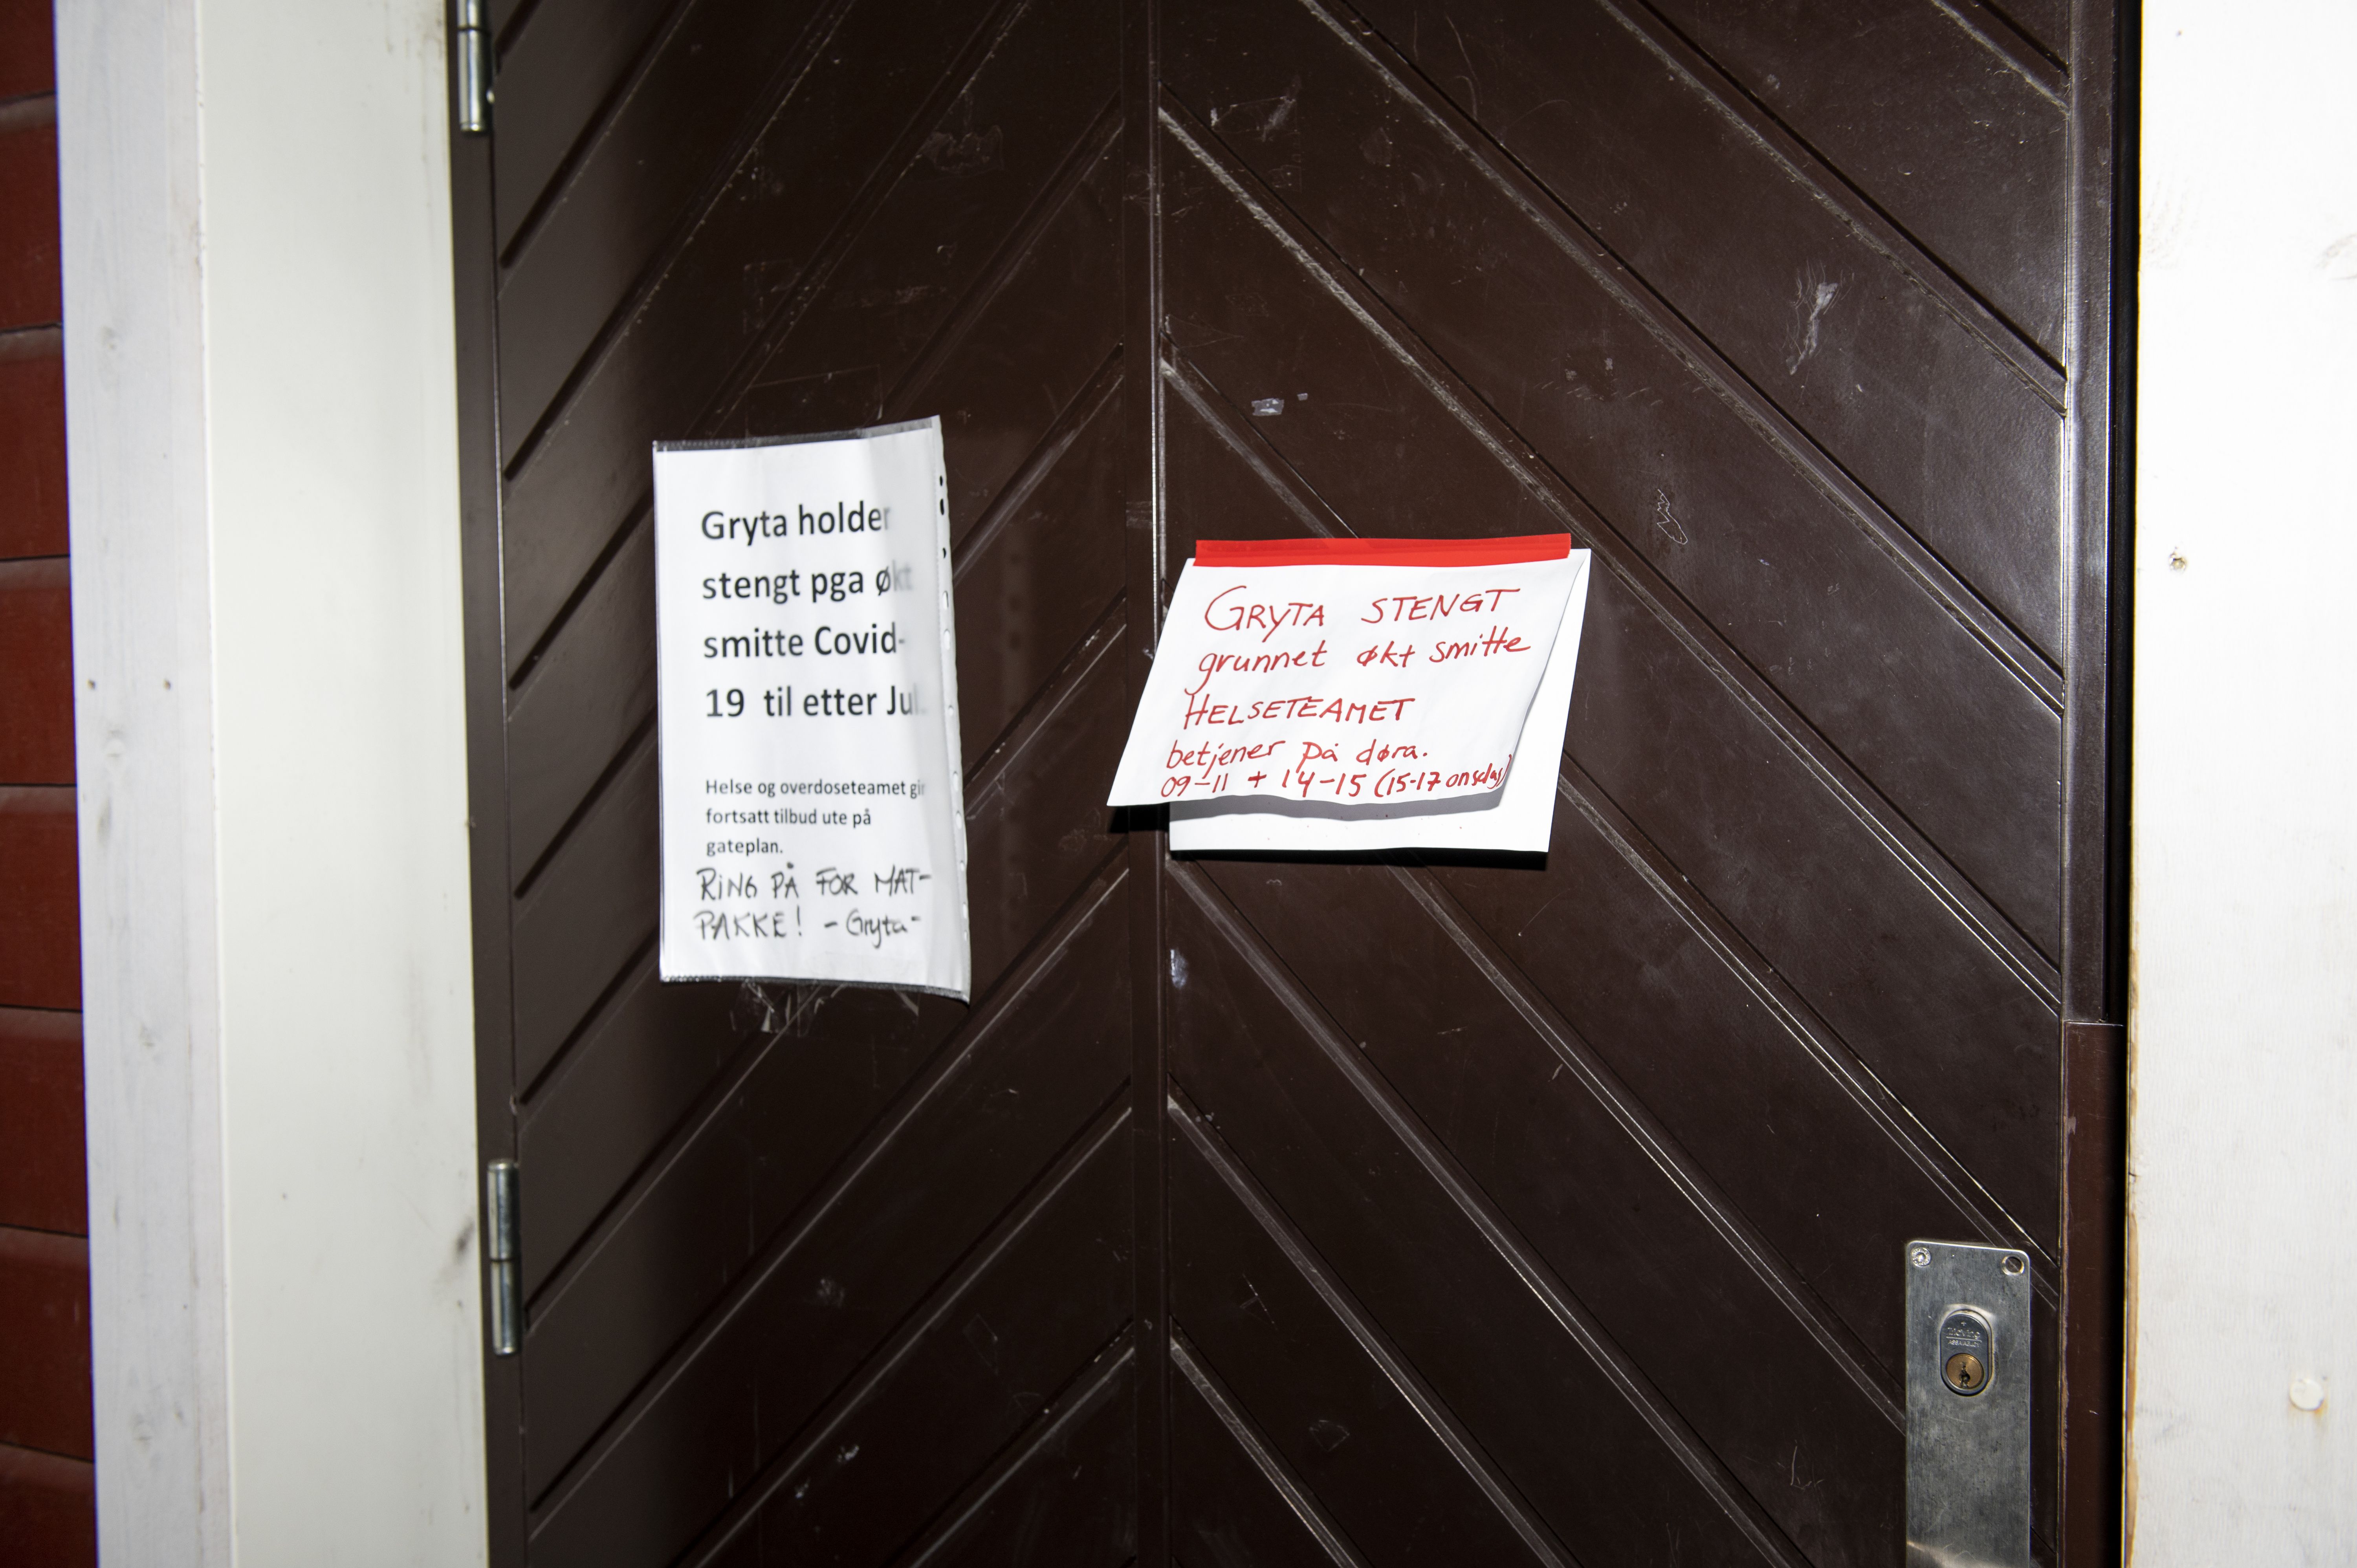 Gryta holder
stengt pga økt
smitte Covid-
19 til etter Jul.
Helse og overdoseteamet gir
fortsatt tilbud ute på
gateplan.
RING PÅ FOR MAT-
PAKKE! - Gryta -
GRYTA STENGT
grunnet økt smitte
HELSETEAMET
betjener på døra.
09-11 + 14-15 (15-17 onsdag)